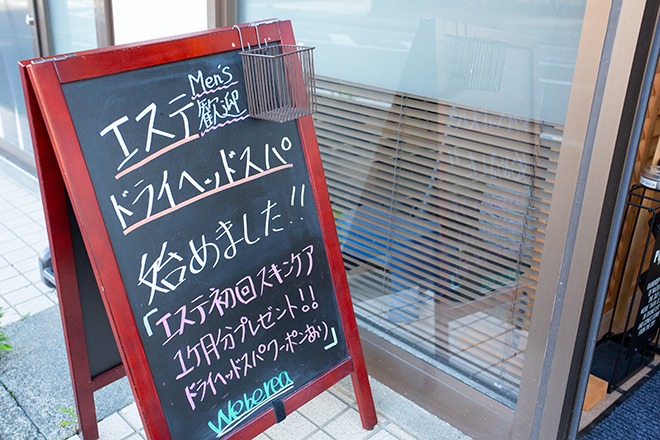 エステ Men's歓迎
ドライヘッドスパ
始めました!!
「エステ初回スキンケア
1ヶ月分プレゼント!!
ドライヘッドスパクーポンあり」